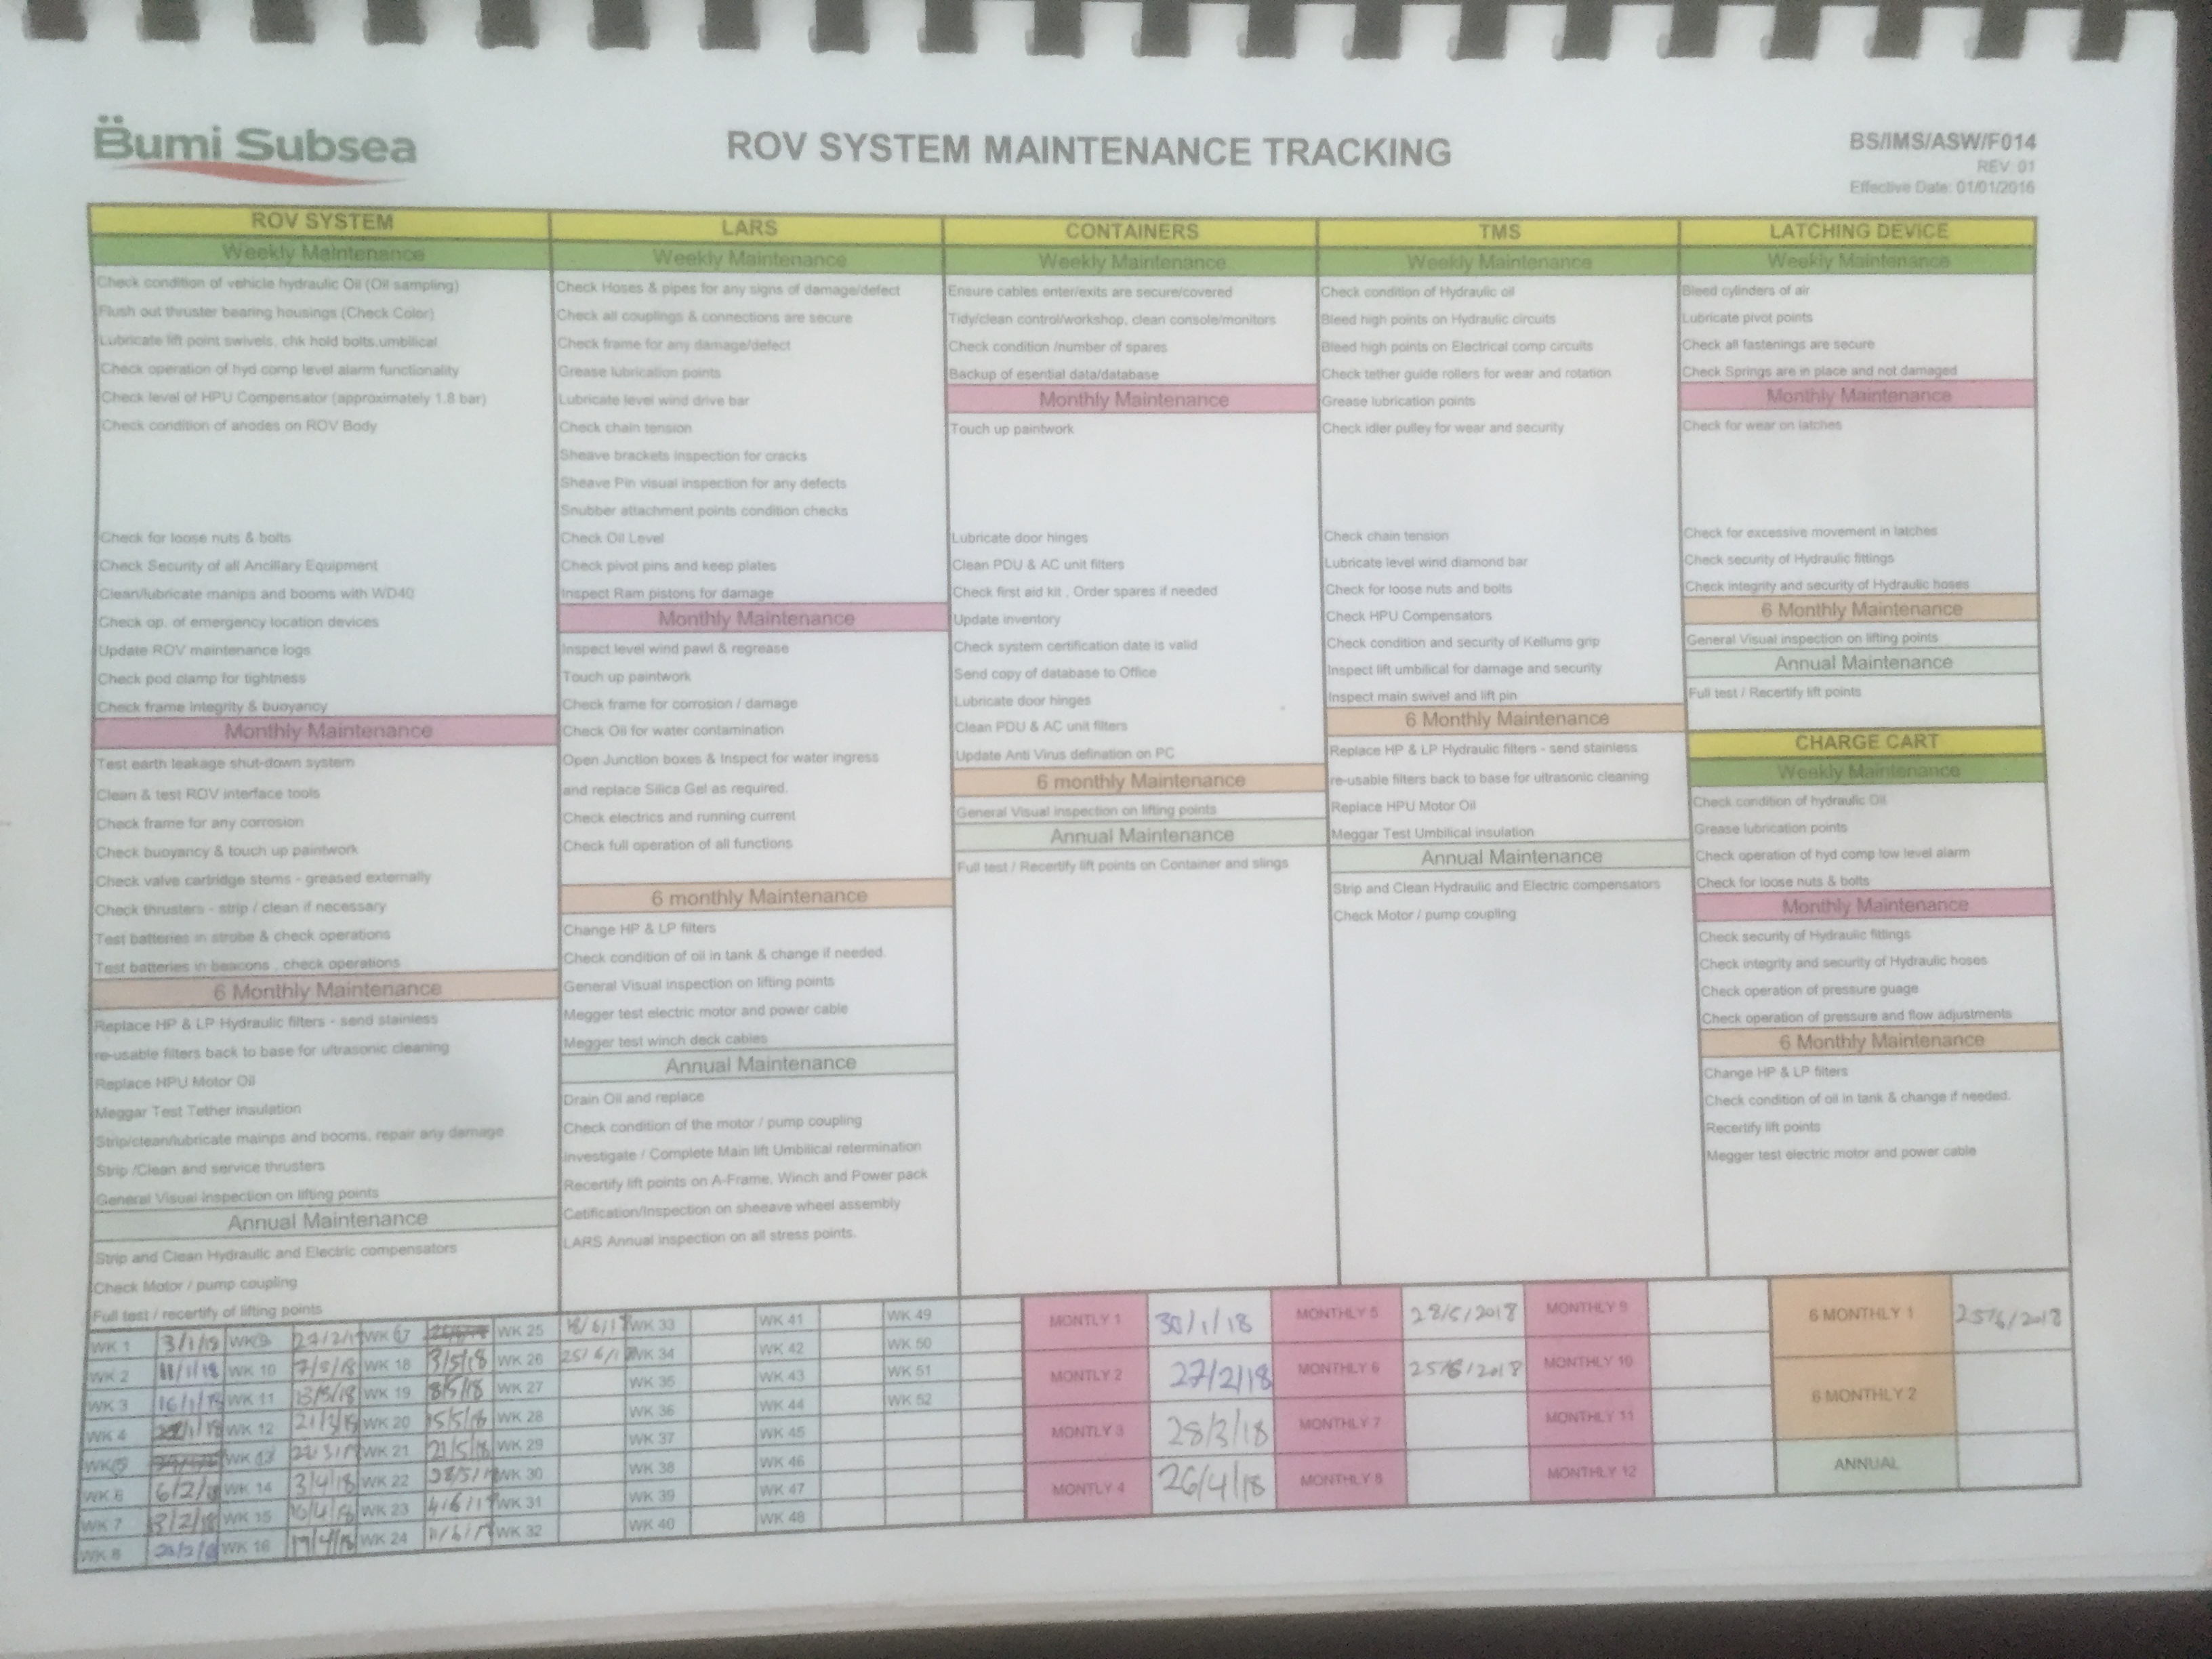 Bumi Subsea
ROV SYSTEM MAINTENANCE TRACKING
BS/IMS/ASW/F014
REV 01
Effective Date: 01/01/2016
ROV SYSTEM
Weekly Maintenance
Check condition of vehicle hydraulic Oil (Oil sampling)
Flush out thruster bearing housings (Check Color)
Lubricate lift point swivels, chk hold bolts,umbilical
Check operation of hyd comp level alarm functionality
Check level of HPU Compensator (approximately 1.8 bar)
Check condition of anodes on ROV Body
Check for loose nuts & bolts
Check Security of all Ancillary Equipment
Clean/lubricate manips and booms with WD40
Check op. of emergency location devices
Update ROV maintenance logs
Check pod clamp for tightness
Monthly Maintenance
Check frame Integrity & buoyancy
Test earth leakage shut-down system
Clean & test ROV interface tools
Check frame for any corrosion
Check buoyancy & touch up paintwork
Check valve cartridge stems - greased externally
Check thrusters - strip / clean if necessary
Test batteries in strobe & check operations
Test batteries in beacons , check operations
6 Monthly Maintenance
Replace HP & LP Hydraulic filters - send stainless
re-usable filters back to base for ultrasonic cleaning
Replace HPU Motor Oil
Meggar Test Tether insulation
Strip/clean/lubricate mainps and booms, repair any damage
Strip /Clean and service thrusters
General Visual Inspection on lifting points
Annual Maintenance
Strip and Clean Hydraulic and Electric compensators
Check Motor / pump coupling
Full test / recertify of lifting points
LARS
Weekly Maintenance
Check Hoses & pipes for any signs of damage/defect
Check all couplings & connections are secure
Check frame for any damage/defect
Grease lubrication points
Lubricate level wind drive bar
Check chain tension
Sheave brackets inspection for cracks
Sheave Pin visual inspection for any defects
Snubber attachment points condition checks
Check Oil Level
Check pivot pins and keep plates
Inspect Ram pistons for damage
Monthly Maintenance
Inspect level wind pawl & regrease
Touch up paintwork
Check frame for corrosion / damage
Check Oil for water contamination
Open Junction boxes & Inspect for water ingress
and replace Silica Gel as required.
Check electrics and running current
Check full operation of all functions
6 monthly Maintenance
Change HP & LP filters
Check condition of oil in tank & change if needed
General Visual Inspection on lifting points
Megger test electric motor and power cable
Megger test winch deck cables
Annual Maintenance
Drain Oil and replace
Check condition of the motor / pump coupling
Investigate / Complete Main lift Umbilical retermination
Recertify lift points on A-Frame, Winch and Power pack
Cetification/Inspection on sheeave wheel assembly
LARS Annual inspection on all stress points.
CONTAINERS
Weekly Maintenance
Ensure cables enter/exits are secure/covered
Tidy/clean control/workshop, clean console/monitors
Check condition /number of spares
Backup of esential data/database
Monthly Maintenance
Touch up paintwork
Lubricate door hinges
Clean PDU & AC unit filters
Check first aid kit , Order spares if needed
Update inventory
Check system certification date is valid
Send copy of database to Office
Lubricate door hinges
Clean PDU & AC unit filters
Update Anti Virus defination on PC
6 monthly Maintenance
General Visual Inspection on lifting points
Annual Maintenance
Full test / Recertify lift points on Container and slings
TMS
Weekly Maintenance
Check condition of Hydraulic oil
Bleed high points on Hydraulic circuits
Bleed high points on Electrical comp circuits
Check tether guide rollers for wear and rotation
Grease lubrication points
Check idler pulley for wear and security
Check chain tension
Lubricate level wind diamond bar
Check for loose nuts and bolts
Check HPU Compensators
Check condition and security of Kellums grip
Inspect lift umbilical for damage and security
Inspect main swivel and lift pin
6 Monthly Maintenance
Replace HP & LP Hydraulic filters - send stainless
re-usable filters back to base for ultrasonic cleaning
Replace HPU Motor Oil
Meggar Test Umbilical insulation
Annual Maintenance
Strip and Clean Hydraulic and Electric compensators
Check Motor / pump coupling
LATCHING DEVICE
Weekly Maintenance
Bleed cylinders of air
Lubricate pivot points
Check all fastenings are secure
Check Springs are in place and not damaged
Monthly Maintenance
Check for wear on latches
Check for excessive movement in latches
Check security of Hydraulic fittings
Check integrity and security of Hydraulic hoses
6 Monthly Maintenance
General Visual inspection on lifting points
Annual Maintenance
Full test / Recertify lift points
CHARGE CART
Weekly Maintenance
Check condition of hydraulic Oil
Grease lubrication points
Check operation of hyd comp low level alarm
Check for loose nuts & bolts
Monthly Maintenance
Check security of Hydraulic fittings
Check integrity and security of Hydraulic hoses
Check operation of pressure guage
Check operation of pressure and flow adjustments
6 Monthly Maintenance
Change HP & LP filters
Check condition of oil in tank & change if needed.
Recertify lift points
Megger test electric motor and power cable
WK 1 3/1/18 WK WK WK 25 18/6/18 WK 33 WK 41 WK 49
WK 2 11/1/18 WK 10 WK 18 WK 26 25/6/18 WK 34 WK 42 WK 50
WK 3 16/1/18 WK 11 WK 19 8/5/18 WK 27 WK 35 WK 43 WK 51
WK 4 WK 12 WK 20 15/5/18 WK 28 WK 36 WK 44 WK 52
WK WK 13 WK 21 21/5/18 WK 29 WK 37 WK 45
WK 6 6/2/18 WK 14 3/4/18 WK 22 28/5/18 WK 30 WK 38 WK 46
WK 7 WK 15 10/4/18 WK 23 4/6/18 WK 31 WK 39 WK 47
WK 8 20/2/18 WK 16 WK 24 11/6/18 WK 32 WK 40 WK 48
MONTLY 1 30/1/18 MONTHLY 5 MONTHLY 9 6 MONTHLY 1
MONTLY 2 27/2/18 MONTHLY 6 MONTHLY 10
MONTLY 3 28/3/18 MONTHLY 7 MONTHLY 11 6 MONTHLY 2
MONTLY 4 26/4/18 MONTHLY 8 MONTHLY 12 ANNUAL